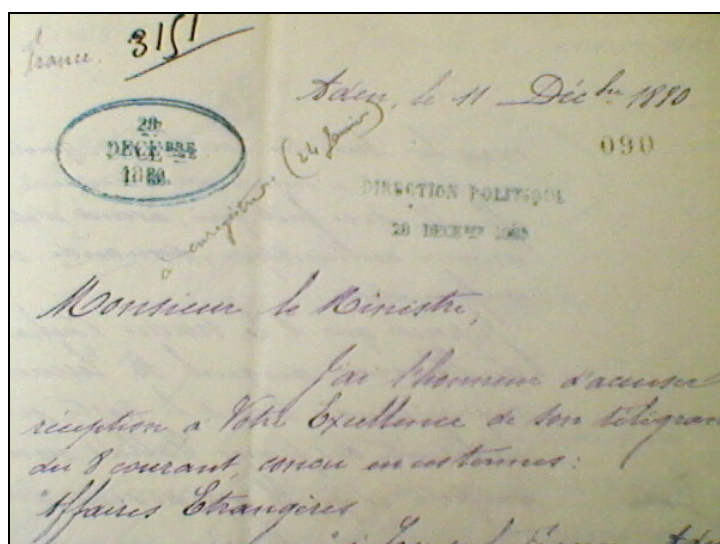 France.
3151
Aden, le 11 Déc bre 1880
28
DECEMBRE
1880.
à enregistrer (24 février)
090
DIRECTION POLITIQUE
28 DECEMB 1880
Monsieur le Ministre,
J'ai l'honneur d'accuser
réception à Votre Excellence de son télégram
du 8 courant, conçu en ces termes:
"Affaires Etrangères